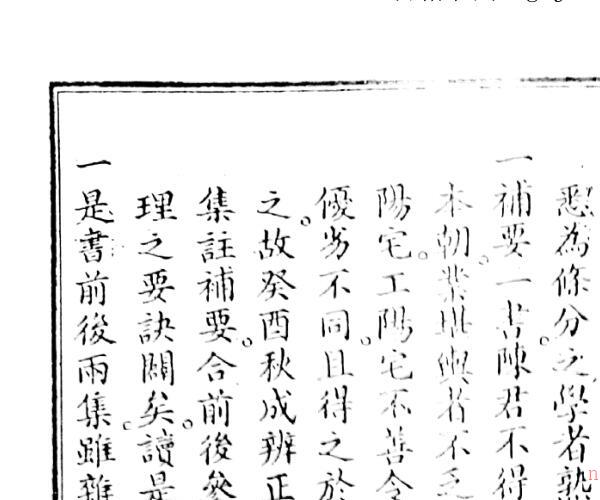 悉為條分之學者熟
一補要一書陳君不得
本朝業堪輿者不乏
陽宅工陽宅不善令
優劣不同且得之於
之故癸酉秋成辨正
集註補要合前後參
理之要訣關矣讀是
一是書前後兩集雖雜